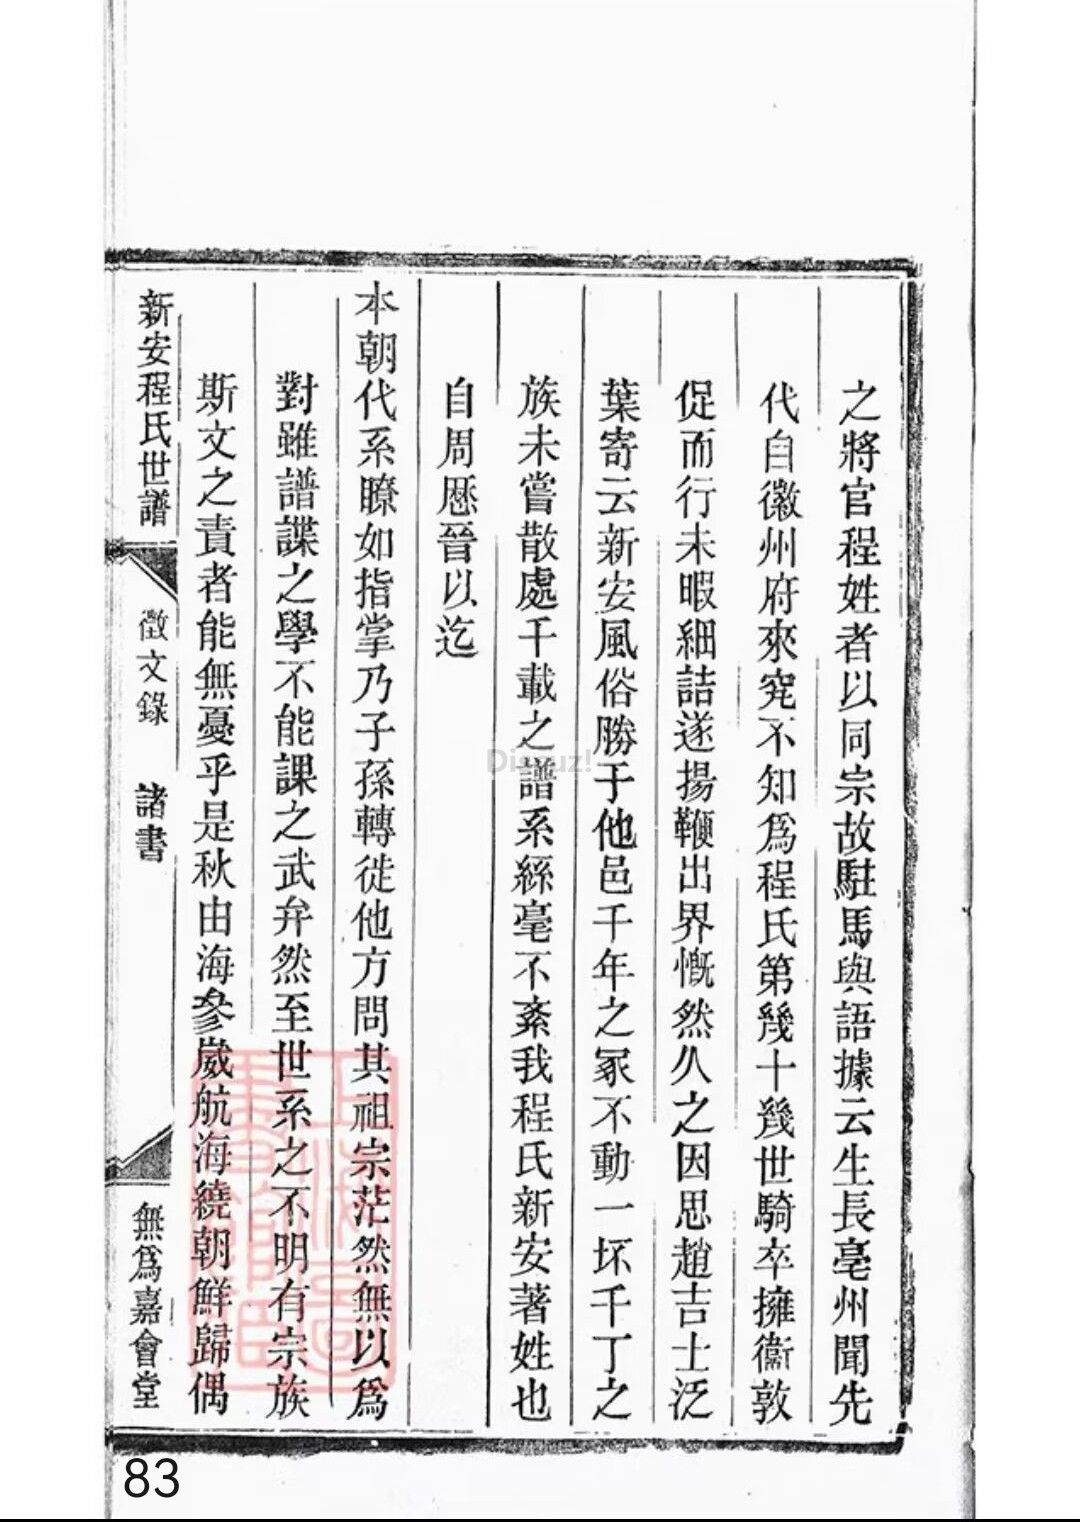 之將官程姓者以同宗故駐馬與語據云生長亳州聞先
代自徽州府來究不知爲程氏第幾十幾世騎卒擁衞敦
促而行未暇細詰遂揚鞭出界慨然久之因思趙吉士泛
葉寄云新安風俗勝于他邑千年之冢不動一坏千丁之
族未嘗散處千載之譜系絲毫不紊我程氏新安著姓也
自周厯晉以迄
本朝代系瞭如指掌乃子孫轉徙他方問其祖宗茫然無以爲
對雖譜諜之學不能課之武弁然至世系之不明有宗族
斯文之責者能無憂乎是秋由海參崴航海繞朝鮮歸偶
新安程氏世譜
徵文錄
諸書
無爲嘉會堂
Discuz!
83